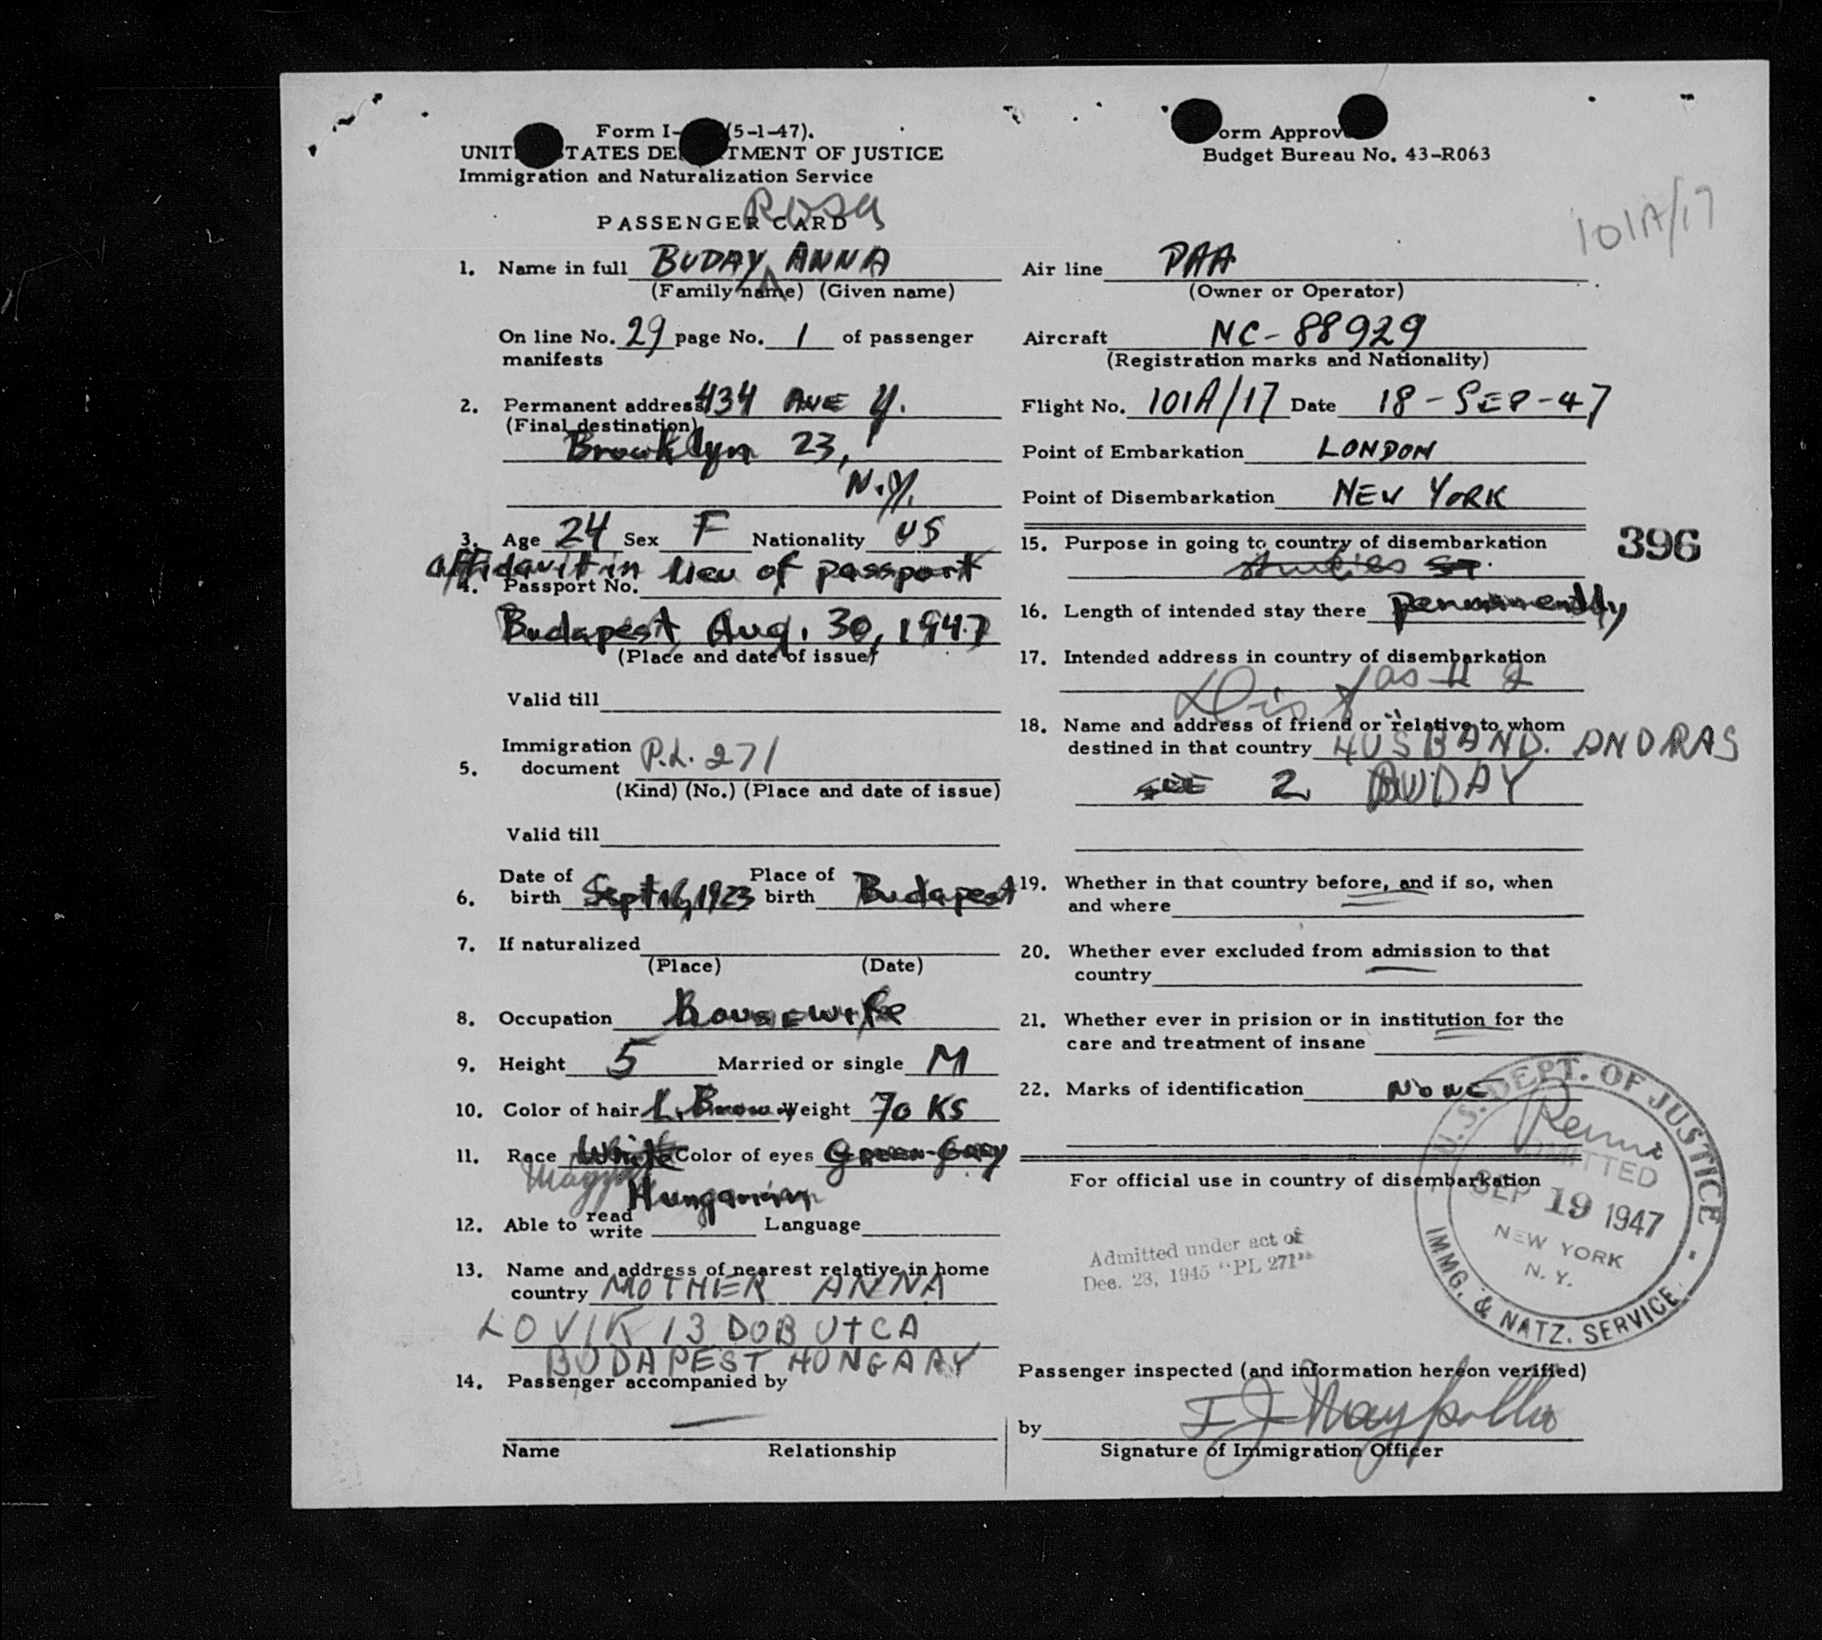 Form I- (5-1-47).
UNIT TATES DE TMENT OF JUSTICE
Immigration and Naturalization Service
orm Approv
Budget Bureau No. 43-R063
101A/17
Rosa
PASSENGER CARD
1. Name in full BUDAY ANNA
(Family name) (Given name)
On line No. 29 page No. 1 of passenger
manifests
2. Permanent address 434 AVE Y.
(Final destination)
Brooklyn 23,
N.Y.
3. Age 24 Sex F Nationality US
affidavit in lieu of passport
4. Passport No.
Budapest Aug. 30, 1947
(Place and date of issue)
Valid till
Immigration
5. document P.L. 271
(Kind) (No.) (Place and date of issue)
Valid till
6. Date of birth Sept 16, 1923 Place of birth Budapest
7. If naturalized
(Place) (Date)
8. Occupation housewife
9. Height 5 Married or single M
10. Color of hair L. Brown Weight 70 KS
11. Race White Color of eyes Green-Grey
Magyar
Hungarian
12. Able to read write Language
13. Name and address of nearest relative in home
country MOTHER ANNA
LOVIK 13 DOB UTCA
BUDAPEST HUNGARY
14. Passenger accompanied by
Name Relationship
Air line PAA
(Owner or Operator)
Aircraft NC-88929
(Registration marks and Nationality)
Flight No. 101A/17 Date 18-SEP-47
Point of Embarkation LONDON
Point of Disembarkation NEW YORK
396
15. Purpose in going to country of disembarkation
studies
16. Length of intended stay there permanently
17. Intended address in country of disembarkation
as # 2
18. Name and address of friend or relative to whom
destined in that country HUSBAND. ANDRAS
SEE 2 BUDAY
19. Whether in that country before, and if so, when
and where
20. Whether ever excluded from admission to that
country
21. Whether ever in prision or in institution for the
care and treatment of insane
22. Marks of identification NONE
For official use in country of disembarkation
U.S. DEPT. OF JUSTICE
ADMITTED
SEP 19 1947
NEW YORK
N. Y.
IMMG. & NATZ. SERVICE
Admitted under act of
Dec. 28, 1945 "PL 271"
Passenger inspected (and information hereon verified)
by
Signature of Immigration Officer